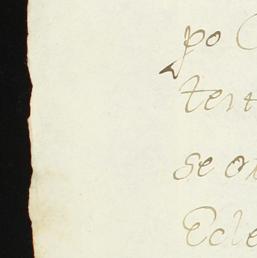 po
tert
se on
Ecle